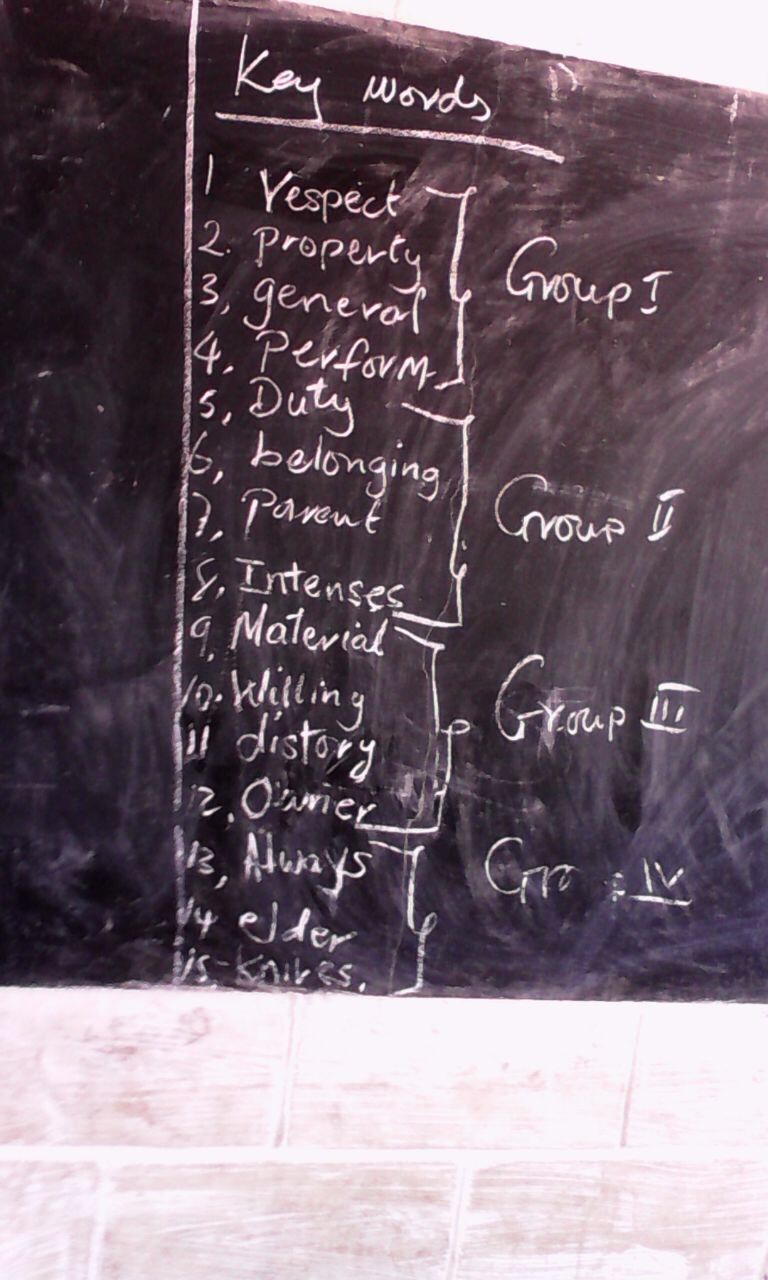 Key words
1 respect
2. property
3, general
4, Perform
5, Duty
6, belonging
7, Parent
8, Intenses
9, Material
10. Willing
11 distory
12, Owner
13, Always
14 elder
15- Knives.
Group I
Group II
Group III
Gro : IV